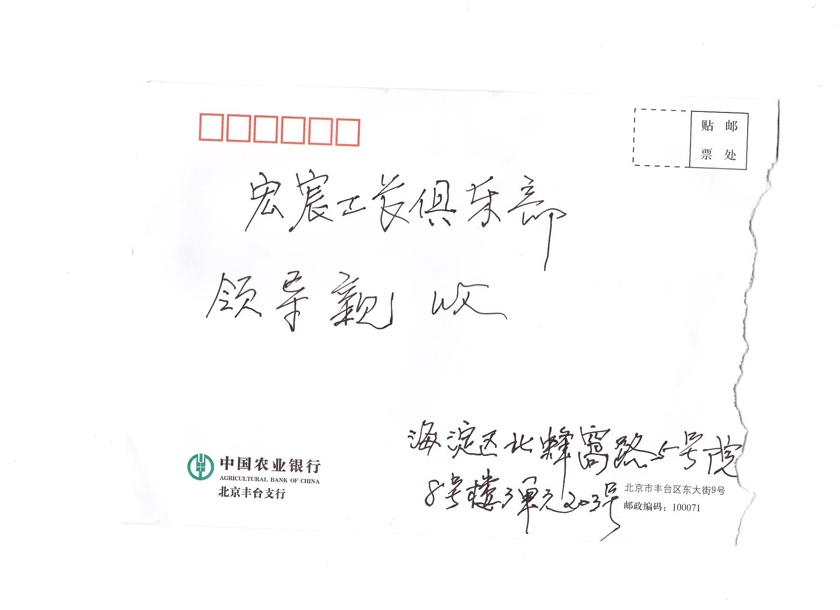 贴 邮
票 处
宏宸工长俱乐部
领导亲收
海淀区北蜂窝路5号院
8号楼3单元203号
中国农业银行
AGRICULTURAL BANK OF CHINA
北京丰台支行
北京市丰台区东大街9号
邮政编码：100071